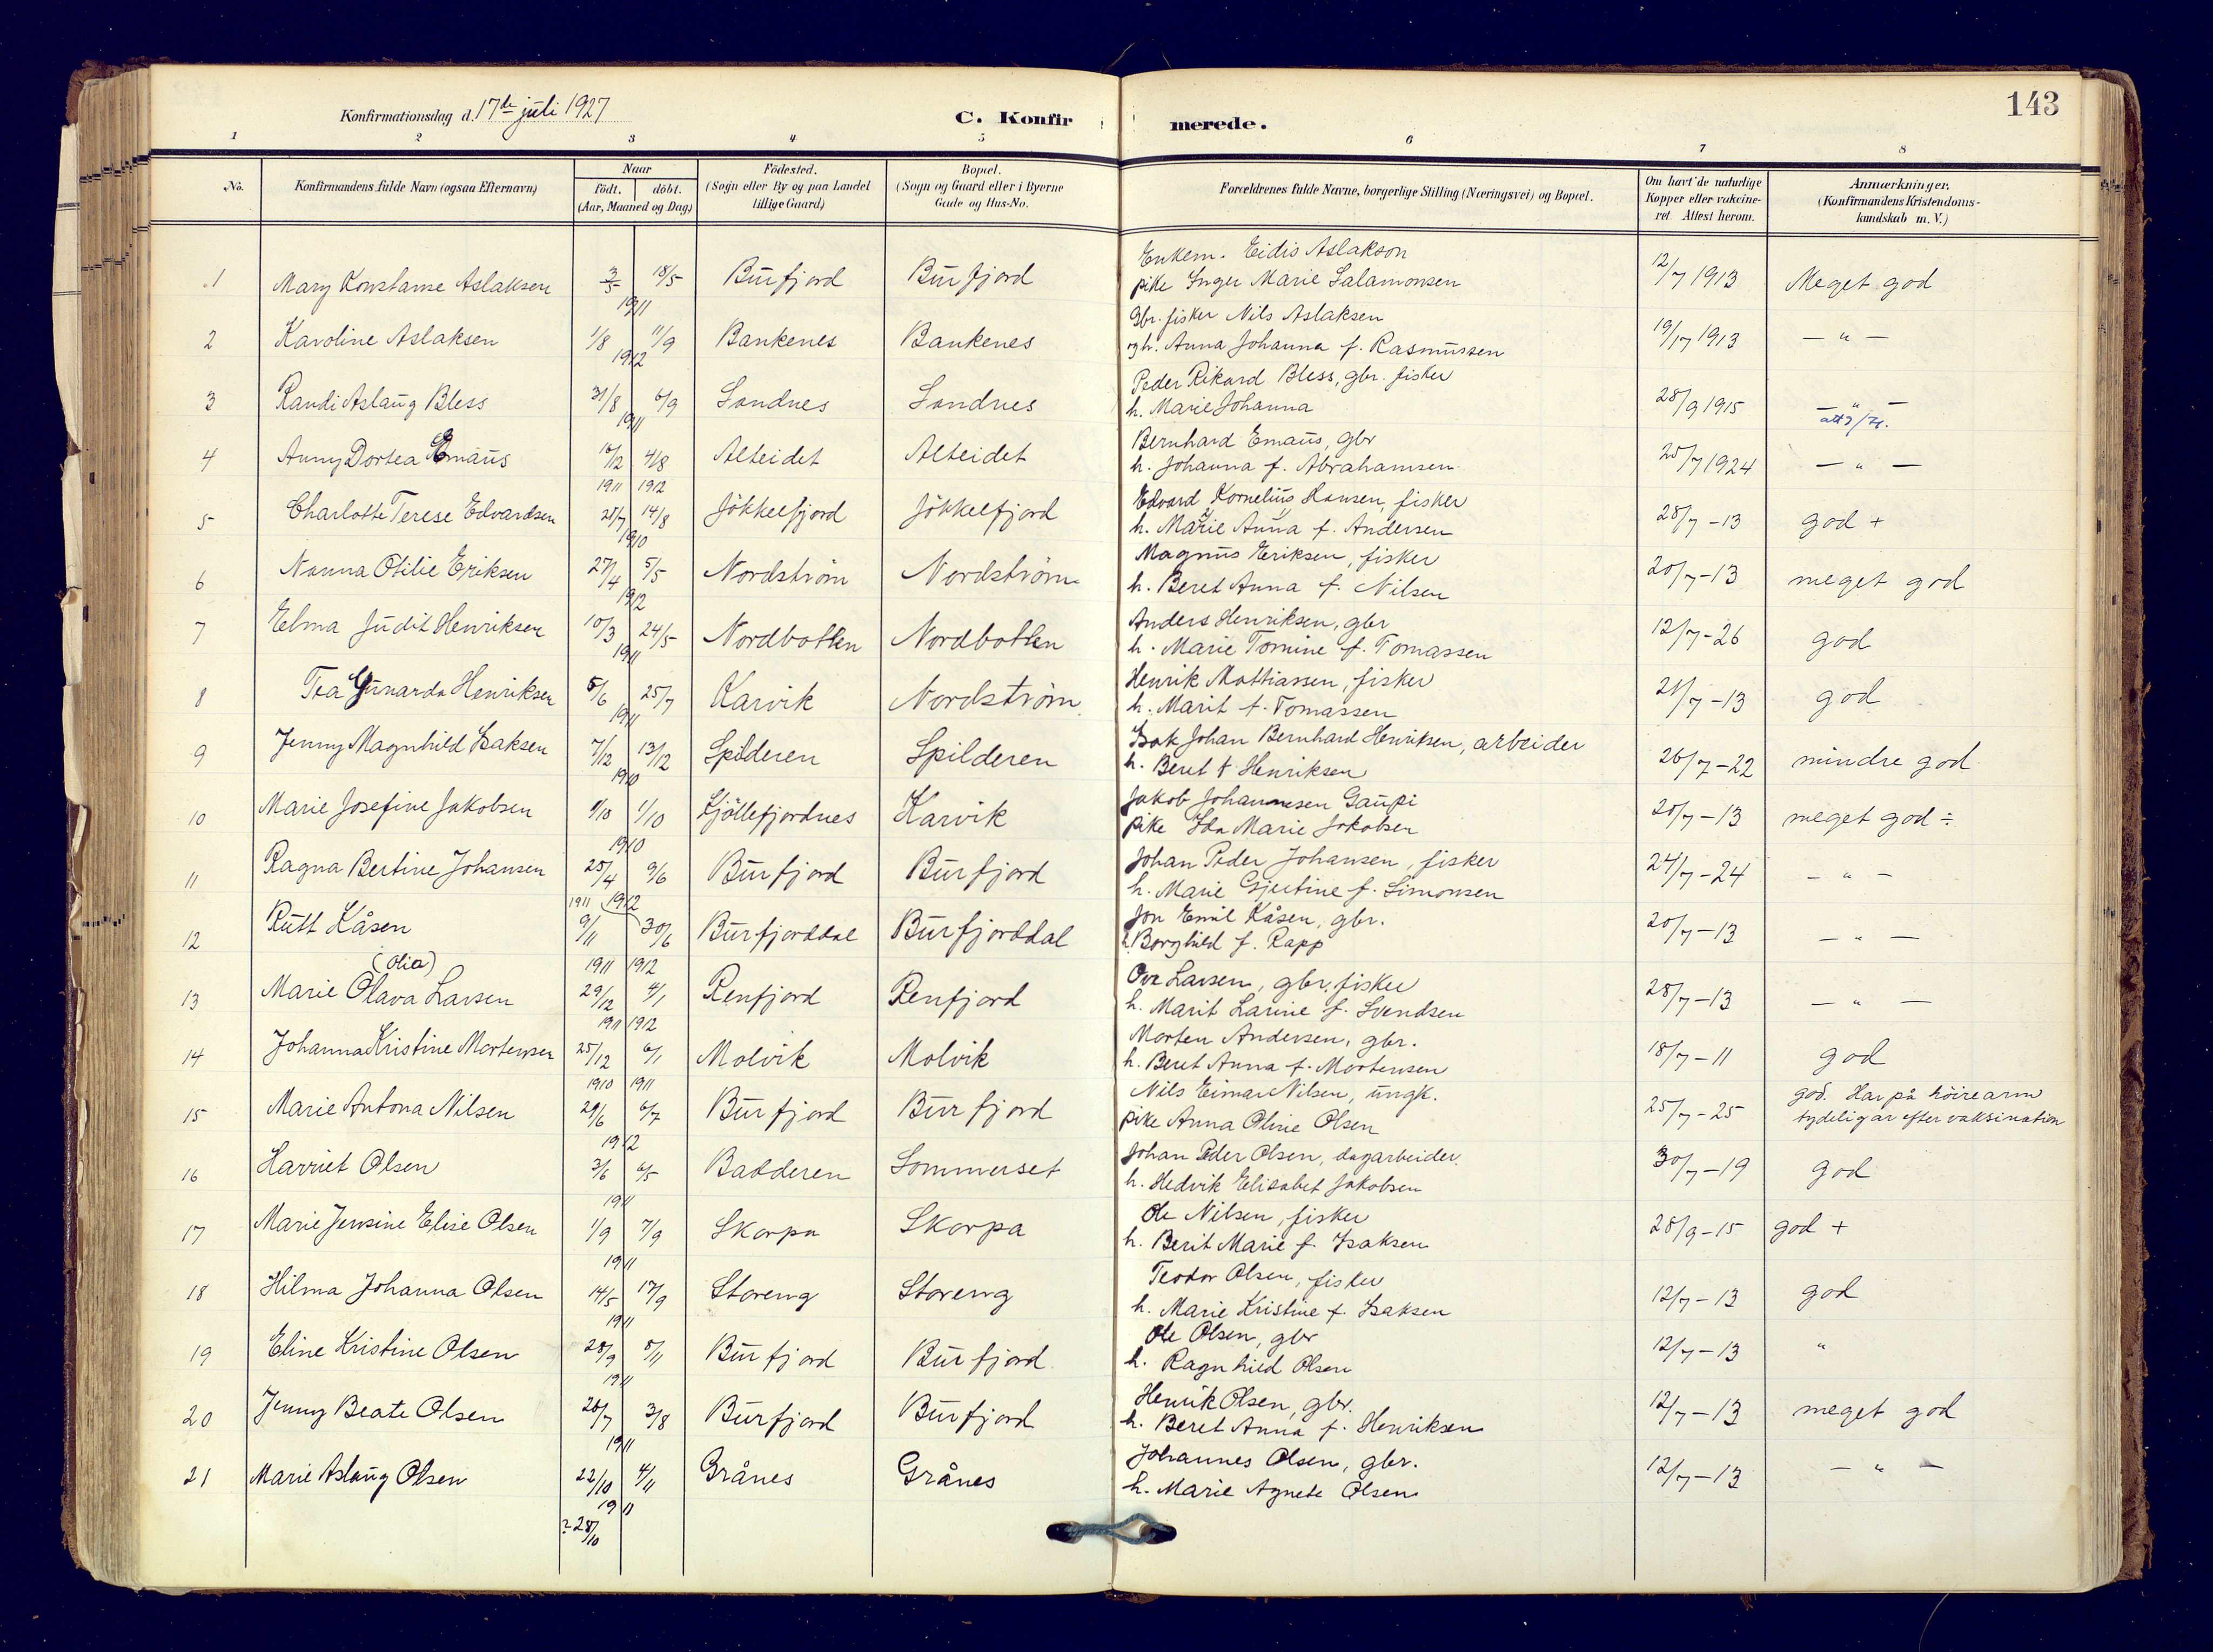 143
Konfirmationsdag d. 17de juli 1927
C. Konfirmerede.
1 2 3 4 5 6 7 8
No. Konfirmandens fulde Navn (ogsaa Efternavn) Naar födt. döbt. (Aar, Maaned og Dag) Födested. (Sogn eller By og paa Landet tillige Gaard) Bopæl. (Sogn og Gaard eller i Byerne Gade og Hus-No. Forældrenes fulde Navne, borgerlige Stilling (Næringsvei) og Bopæl. Om havt de naturlige Kopper eller vakcineret Attest herom. Anmærkninger. (Konfirmandens Kristendomskundskab m. V.)
1 Mary Konstanse Aslaksen 3/5 18/5 1911 Burfjord Burfjord Enkem. Eidis Aslakson
pike Inger Marie Salamonsen 12/7 1913 Meget god
2 Karoline Aslaksen 1/8 11/9 1912 Bankenes Bankenes Gbr. fisker Nils Aslaksen
og h. Anna Johanna f. Rasmussen 19/17 1913 — " —
3 Randi Aslaug Bless 31/8 6/9 1911 Sandnes Sandnes Peder Rikard Bless, gbr. fisker
h. Marie Johanna 28/9 1915 — " —
4 Anny Dortea Emaus 16/12 4/8 1911 1912 Alteidet Alteidet Bernhard Emaus, gbr
h. Johanna f. Abrahamsen 25/7 1924 — " —
5 Charlotte Terese Edvardsen 28/7 14/8 1910 Jökkelfjord Jökkelfjord Edvard Kornelius Hansen, fisker
h. Marie Anna f. Andersen 28/7 - 13 god +
6 Nanna Otilie Eriksen 27/4 5/5 1912 Nordström Nordström Magnus Eriksen, fisker
h. Beret Anna f. Nilsen 20/7 - 13 meget god
7 Elma Judit Henriksen 10/3 24/5 1911 Nordbotten Nordbotten Anders Henriksen, gbr
h. Marie Tomine f. Tomassen 12/7 - 26 god
8 Tea Gunarda Henriksen 5/6 25/7 1911 Karvik Nordström Henrik Mattiassen, fisker
h. Marit f. Tomassen 21/7 - 13 god
9 Jenny Magnhild Isaksen 7/12 13/12 1910 Spilderen Spilderen Isak Johan Bernhard Henriksen, arbeider
h. Beret f Henriksen 26/7 - 22 mindre god
10 Marie Josefine Jakobsen 1/10 1910 Kjöllefjordnes Karvik Jakob Johannesen Gaupi
pike Ida Marie Jakobsen 20/7 - 13 meget god ÷
11 Ragna Bertine Johansen 25/4 9/6 1912 Burfjord Burfjord Johan Peder Johansen, fisker
h. Marie Gjertine f. Simonsen 24/7 - 24 — " —
12 Rutt Kåsen 1911 9/11 30/6 Burfjorddal Burfjorddal Jon Emil Kåsen, gbr.
h. Borghild f. Rapp 20/7 - 13 — " —
13 Marie Olava (Olia) Larsen 1911 1912 29/12 4/1 Renfjord Renfjord Ove Larsen, gbr, fisker
h. Marit Larine f. Svendsen 28/7 - 13 — " —
14 Johanna Kristine Mortensen 1911 1912 25/12 6/1 Molvik Molvik Morten Andersen, gbr.
h. Beret Anna f. Mortensen 18/7 - 11 god
15 Marie Antona Nilsen 1910 1911 29/6 6/7 Burfjord Burfjord Nils Eimar Nilsen, ungk.
pike Anna Oline Olsen 25/7 - 25 god. Har på höire arm
tydelig ar efter vaksination
16 Harriet Olsen 1912 3/6 6/5 Badderen Sommerset Johan Peder Olsen, dagarbeider
h. Hedvik Elisabet Jakobsen 30/7 - 19 god
17 Marie Jensine Elise Olsen 1911 1/9 7/9 Skorpa Skorpa Ole Nilsen, fisker
h. Berit Marie f. Isaksen 28/9 - 15 god +
18 Hilma Johanna Olsen 1911 14/5 17/9 Storeng Storeng Teodor Olsen, fisker
h. Marie Kristine f. Isaksen 12/7 - 13 god
19 Eline Kristine Olsen 1911 28/9 5/11 Burfjord Burfjord Ole Olsen, gbr
h. Ragnhild Olsen 12/7 - 13 "
20 Jenny Beate Olsen 1911 20/7 3/8 Burfjord Burfjord Henrik Olsen, gbr.
h. Beret Anna f. Henriksen 12/7 - 13 meget god
21 Marie Aslaug Olsen 1911 22/10 4/11 Grånes Grånes Johannes Olsen, gbr.
h. Marie Agnete Olsen 12/7 - 13 — " —
1911
? 28/10